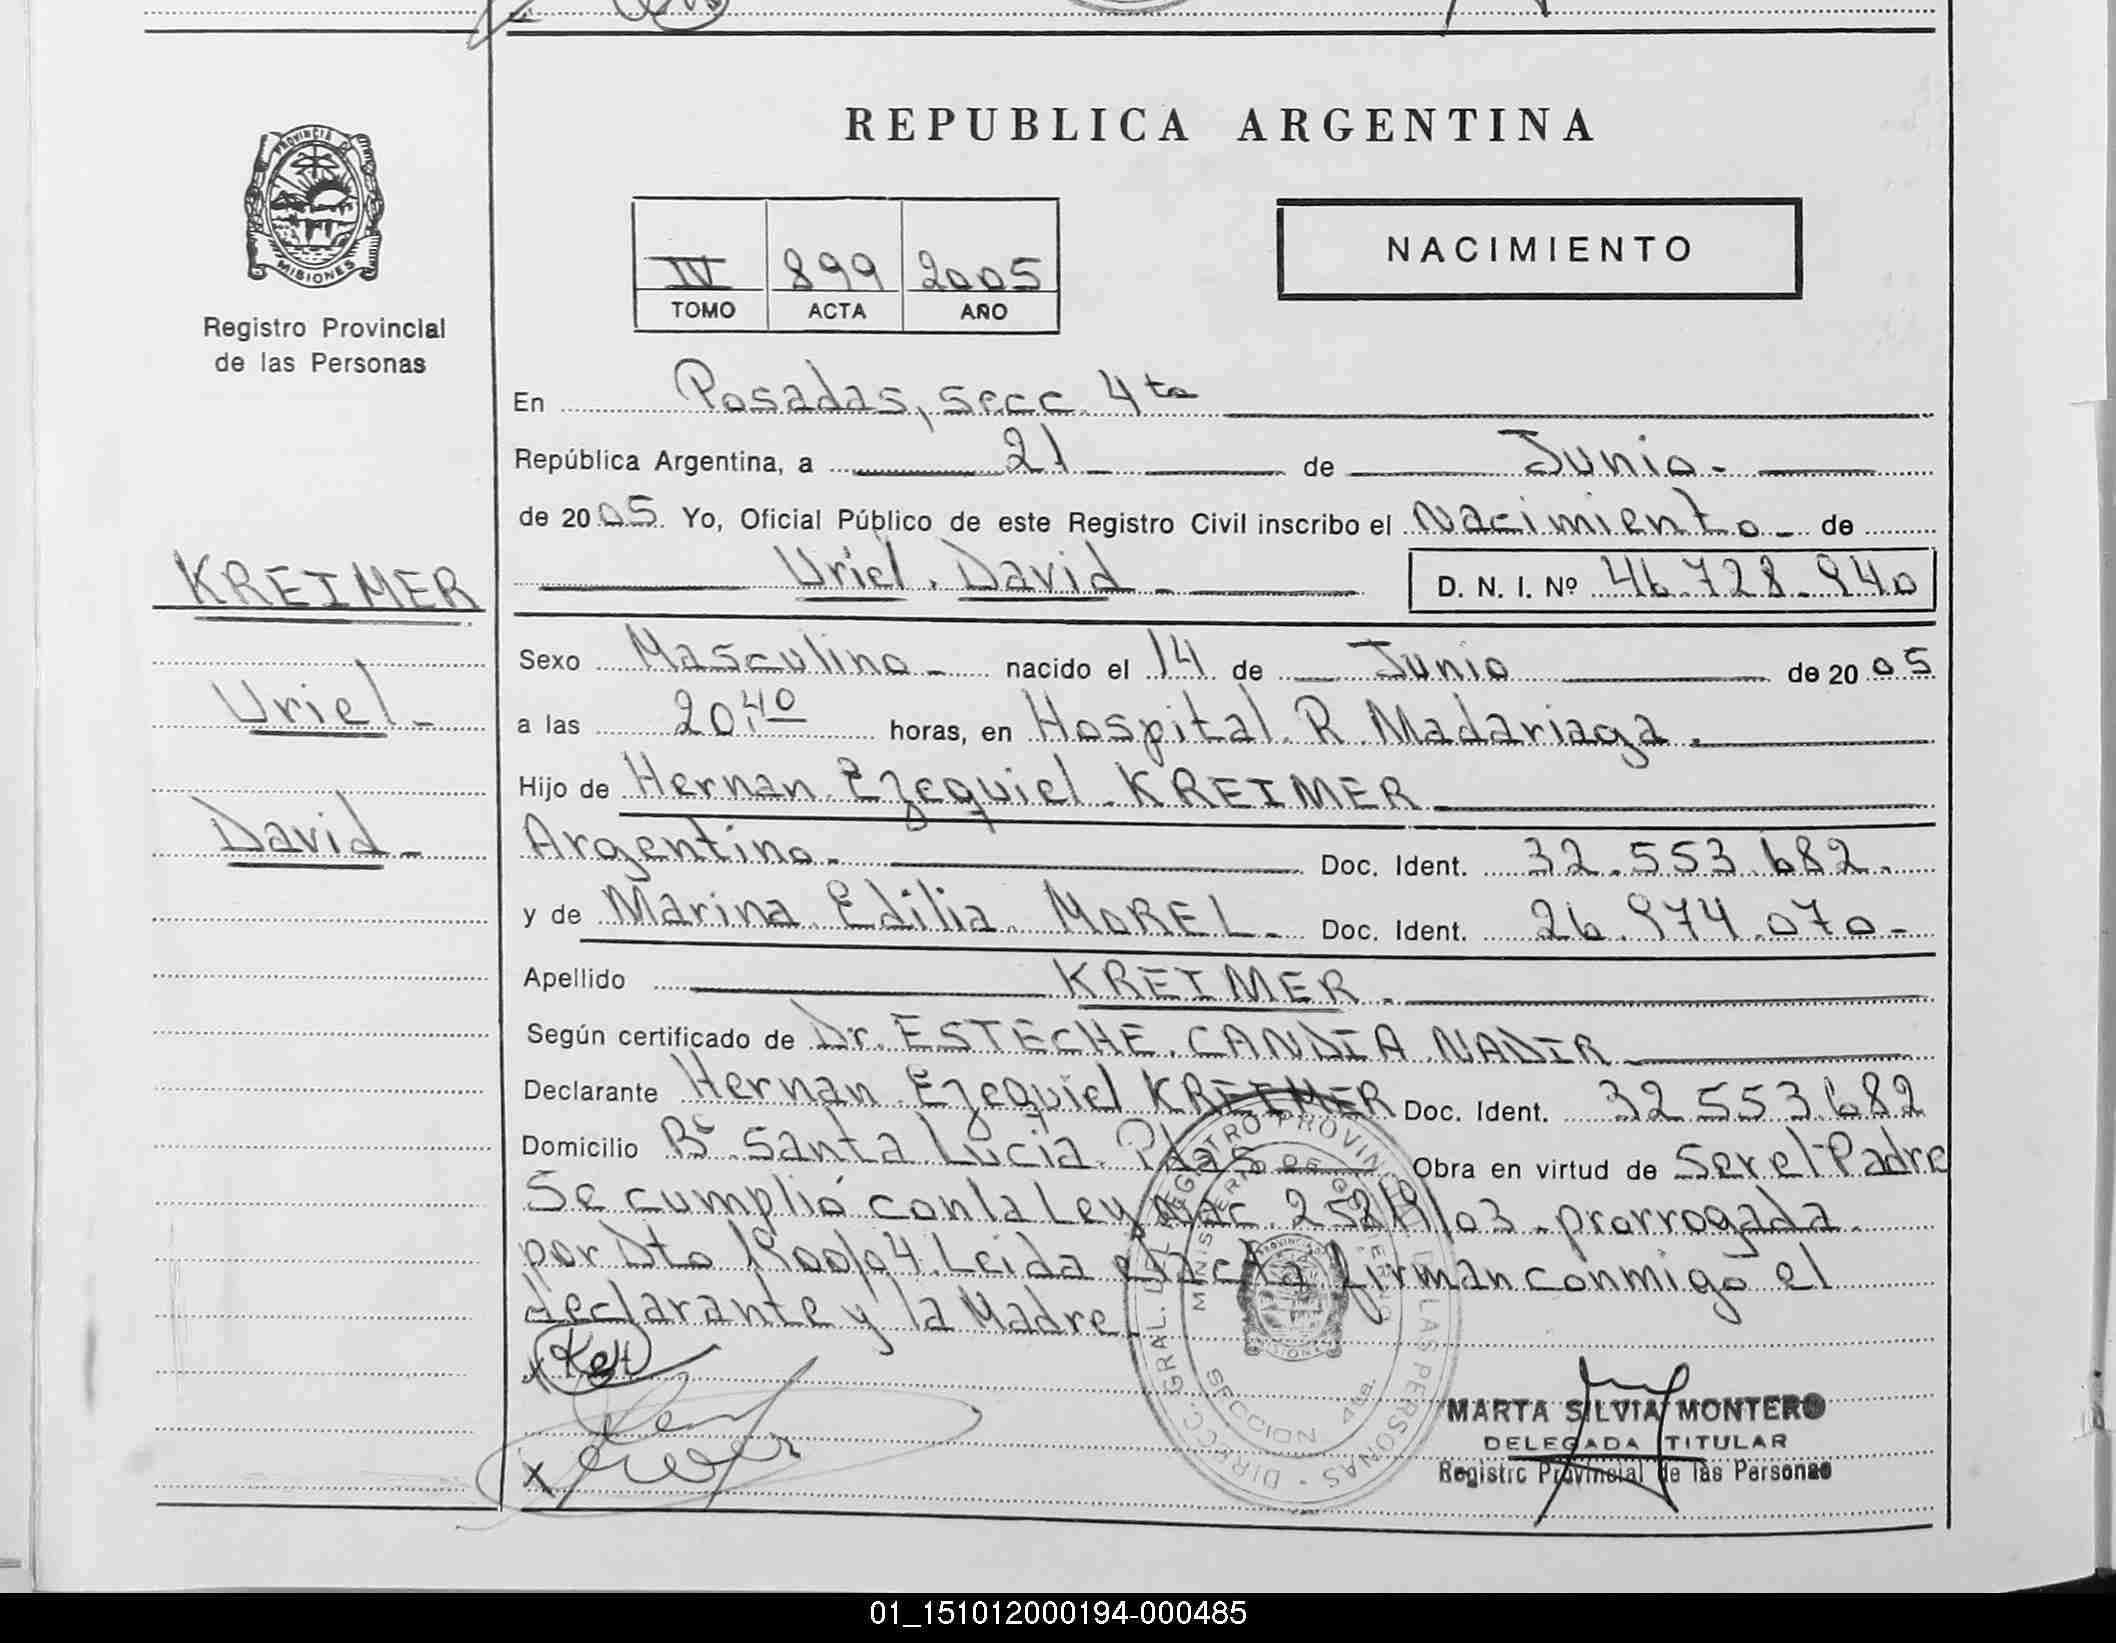 REPUBLICA ARGENTINA
PROVINCIA DE
MISIONES
Registro Provincial
de las Personas
IV 899 2005
TOMO ACTA AÑO
NACIMIENTO
En Posadas, secc. 4ta
República Argentina, a 21 de Junio.
de 2005. Yo, Oficial Público de este Registro Civil inscribo el Nacimiento de
Uriel David D. N. I. Nº 46.728.940
KREIMER
Uriel
David
Sexo Masculino nacido el 14 de Junio de 2005
a las 20,40 horas, en Hospital R. Madariaga.
Hijo de Hernan Ezequiel KREIMER
Argentino. Doc. Ident. 32.553.682.
y de Marina Edilia MOREL. Doc. Ident. 26.974.070
Apellido KREIMER.
Según certificado de Dr. ESTECHE CANDIA NADIR
Declarante Hernan Ezequiel KREIMER Doc. Ident. 32553682
Domicilio Bº Santa Lucia. Pdas Obra en virtud de Ser el Padre
Se cumplió con la Ley Nac. 25819/03. prorrogada
por Dto 1900/04. Leida el acta firman conmigo el
declarante y la Madre.
DIRECC. GRAL. DEL REGISTRO PROVINCIAL DE LAS PERSONAS
MINISTERIO DE GOBIERNO
SECCION 4ta.
MARTA SILVIA MONTERO
DELEGADA TITULAR
Registro Provincial de las Personas
01_151012000194-000485